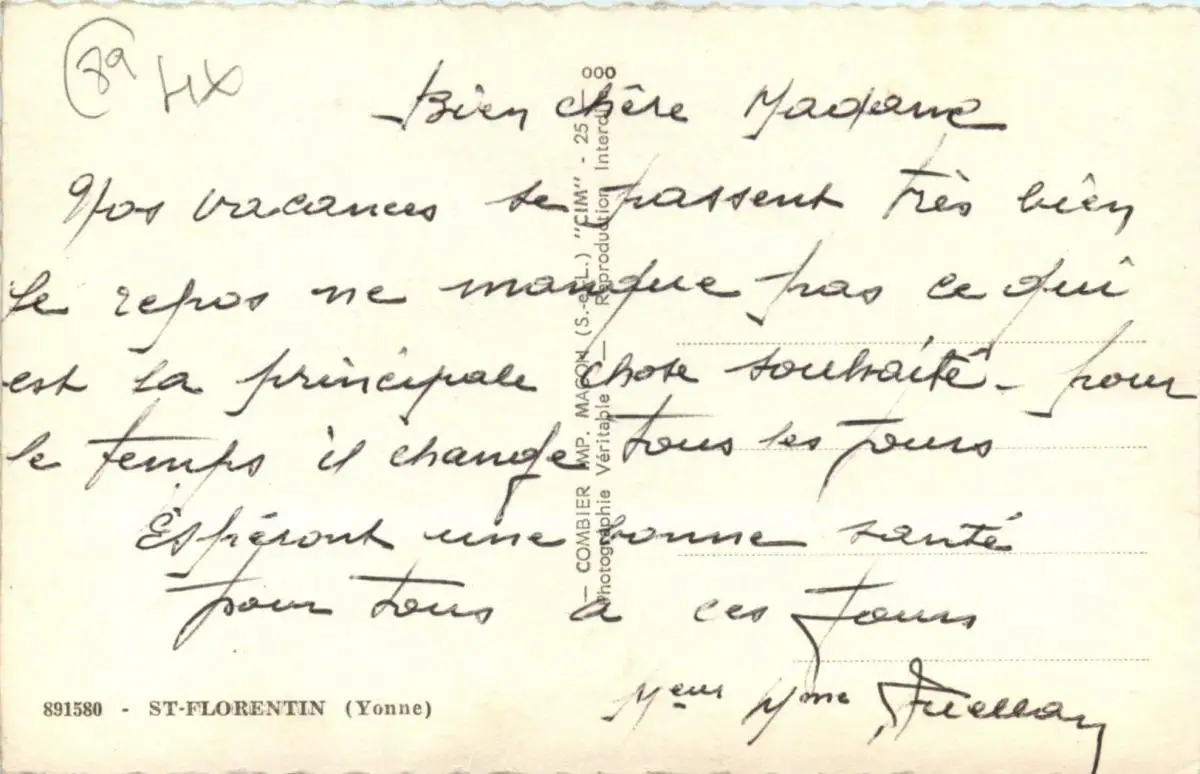 89 HX
Bien chère Madame
Nos vacances se passent très bien
le repos ne manque pas ce qui
est la principale chose souhaité - pour
le temps il change tous les jours
Espéront une bonne santé
pour tous a ces jours
Meur Mme
891580 - ST-FLORENTIN (Yonne)
— COMBIER IMP. MACON (S.-et-L.) "CIM" - 25 000
Photographie Véritable — Reproduction Interdite